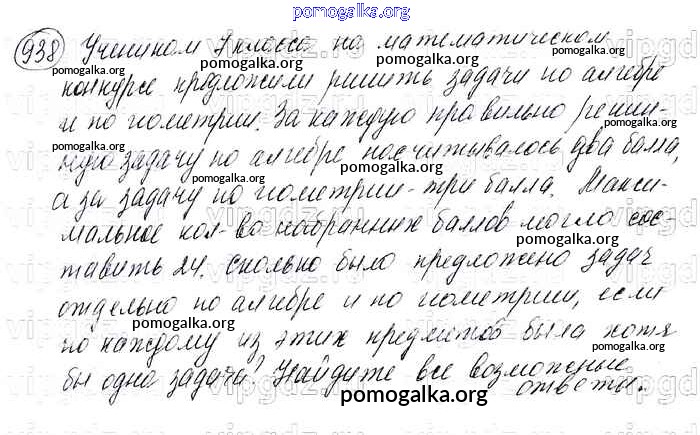 pomogalka.org
938 Ученикам 7 класса на математическом
pomogalka.org
конкурсе предложили решить задачи по алгебре
pomogalka.org
и по геометрии. За каждую правильно решен-
pomogalka.org
ную задачу по алгебре насчитывалось два балла,
pomogalka.org
а за задачу по геометрии - три балла. Макси-
pomogalka.org
мальное кол-во набранных баллов могло сос-
pomogalka.org
тавить 24. Сколько было предложено задач
pomogalka.org
отдельно по алгебре и по геометрии, если
pomogalka.org
по каждому из этих предметов была хотя
pomogalka.org
бы одна задача? Найдите все возможные
ответы.
pomogalka.org